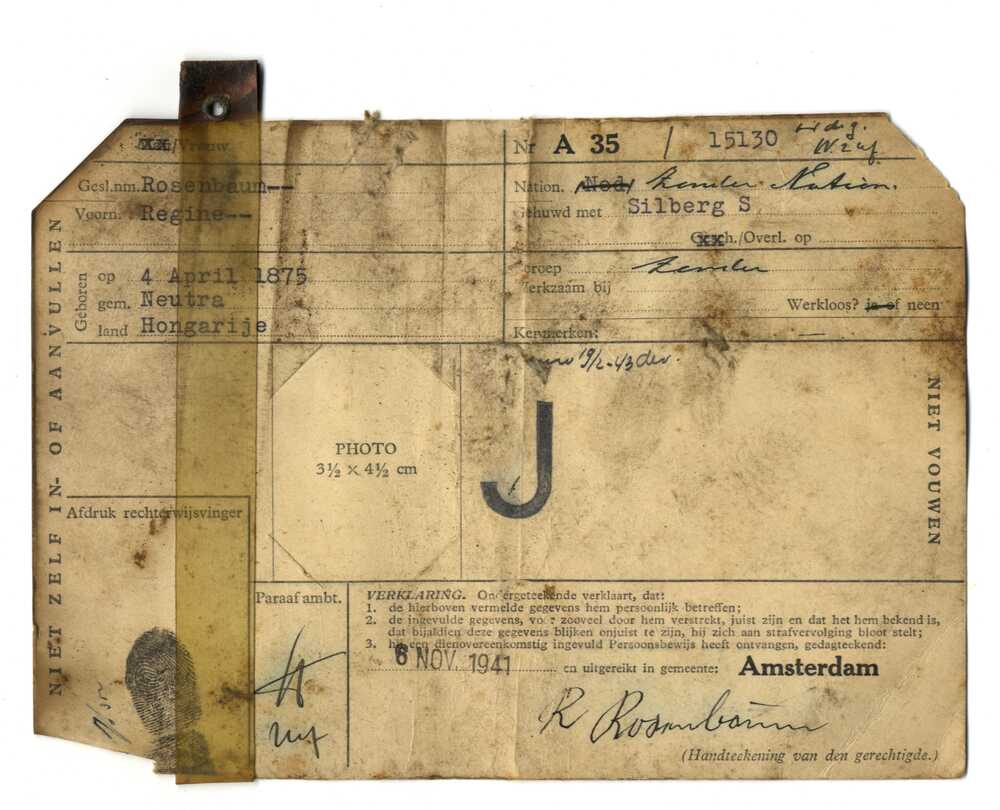 xx/Vrouw
Nr A 35 / 15130
Gesl.nm. Rosenbaum--
Voorn. Regine--
Nation. Ned. zonder Nation.
Gehuwd met Silberg S
xxh./Overl. op
Geboren
op 4 April 1875
gem. Neutra
land Hongarije
Beroep zonder
Werkzaam bij
Werkloos? ja of neen
Kenmerken: —
19/2-43
J
PHOTO
3½ × 4½ cm
NIET ZELF IN- OF AANVULLEN
NIET VOUWEN
Afdruk rechterwijsvinger
Paraaf ambt.
VERKLARING. Ondergeteekende verklaart, dat:
1. de hierboven vermelde gegevens hem persoonlijk betreffen;
2. de ingevulde gegevens, voor zooveel door hem verstrekt, juist zijn en dat het hem bekend is,
dat bijaldien deze gegevens blijken onjuist te zijn, hij zich aan strafvervolging bloot stelt;
3. hij een dienovereenkomstig ingevuld Persoonsbewijs heeft ontvangen, gedagteekend:
6 NOV. 1941 en uitgereikt in gemeente: Amsterdam
R Rosenbaum
(Handteekening van den gerechtigde.)